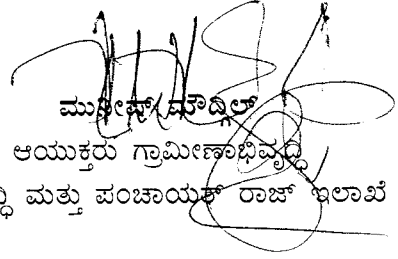 ಮುನೀಷ್ ಮೌದ್ಗಿಲ್
ಆಯುಕ್ತರು ಗ್ರಾಮೀಣಾಭಿವೃದ್ಧಿ
ಮತ್ತು ಪಂಚಾಯತ್ ರಾಜ್ ಇಲಾಖೆ